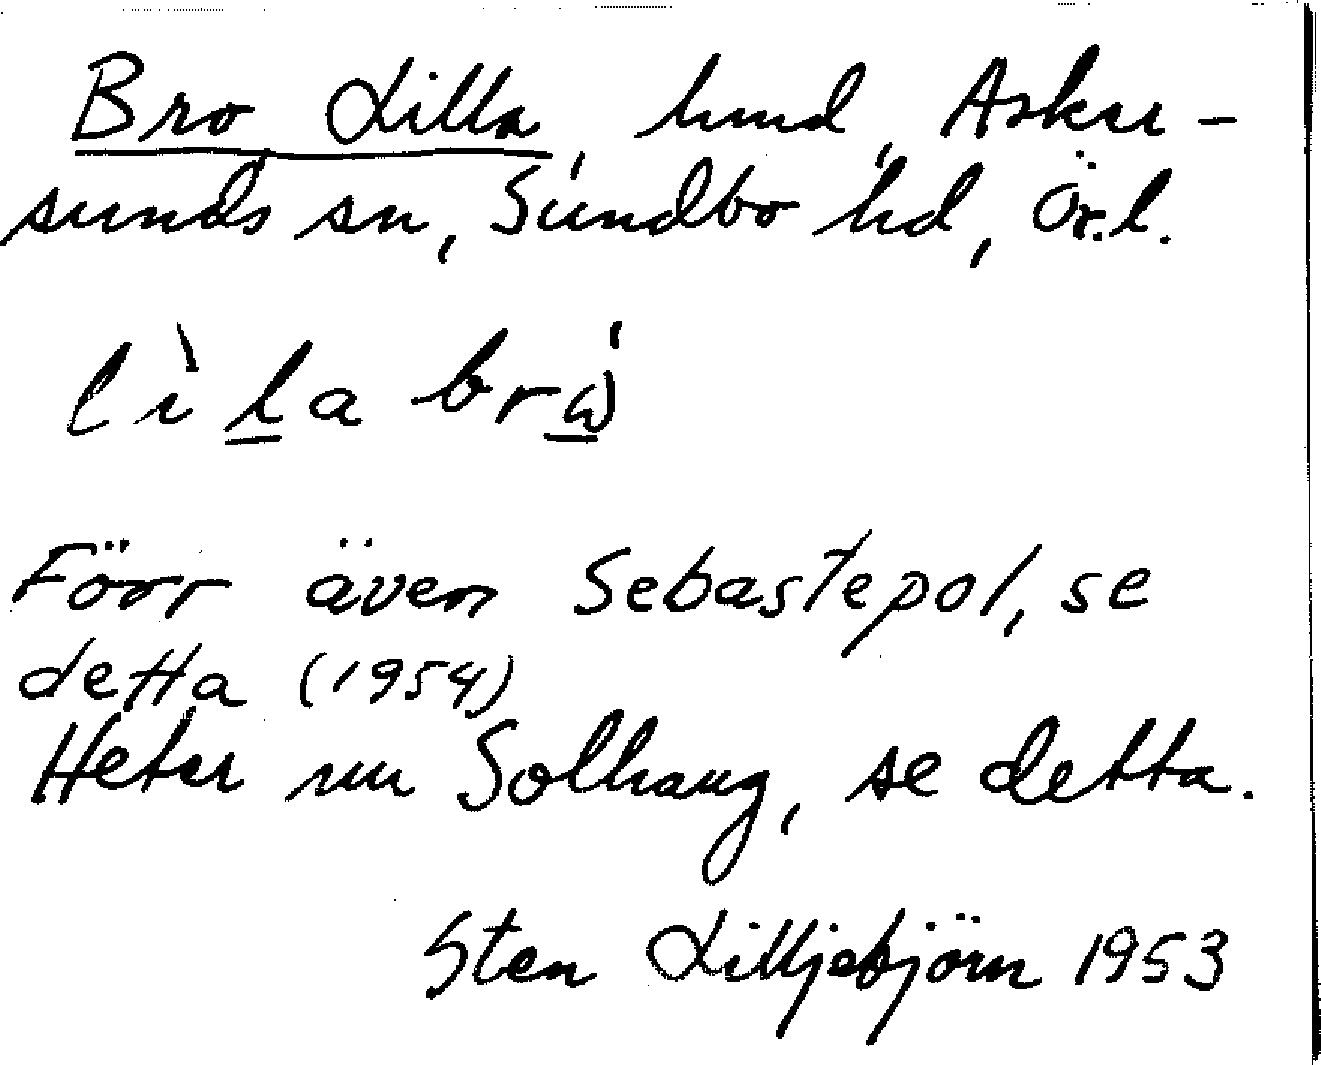 Bro Lilla, hmd, Asker-
sunds sn, Sundbo hd, Ör.l.
lìla brǻ
Förr även Sebastepol, se
detta (1954)
Heter nu Solhaug, se detta.
Sten Lilljebjörn 1953